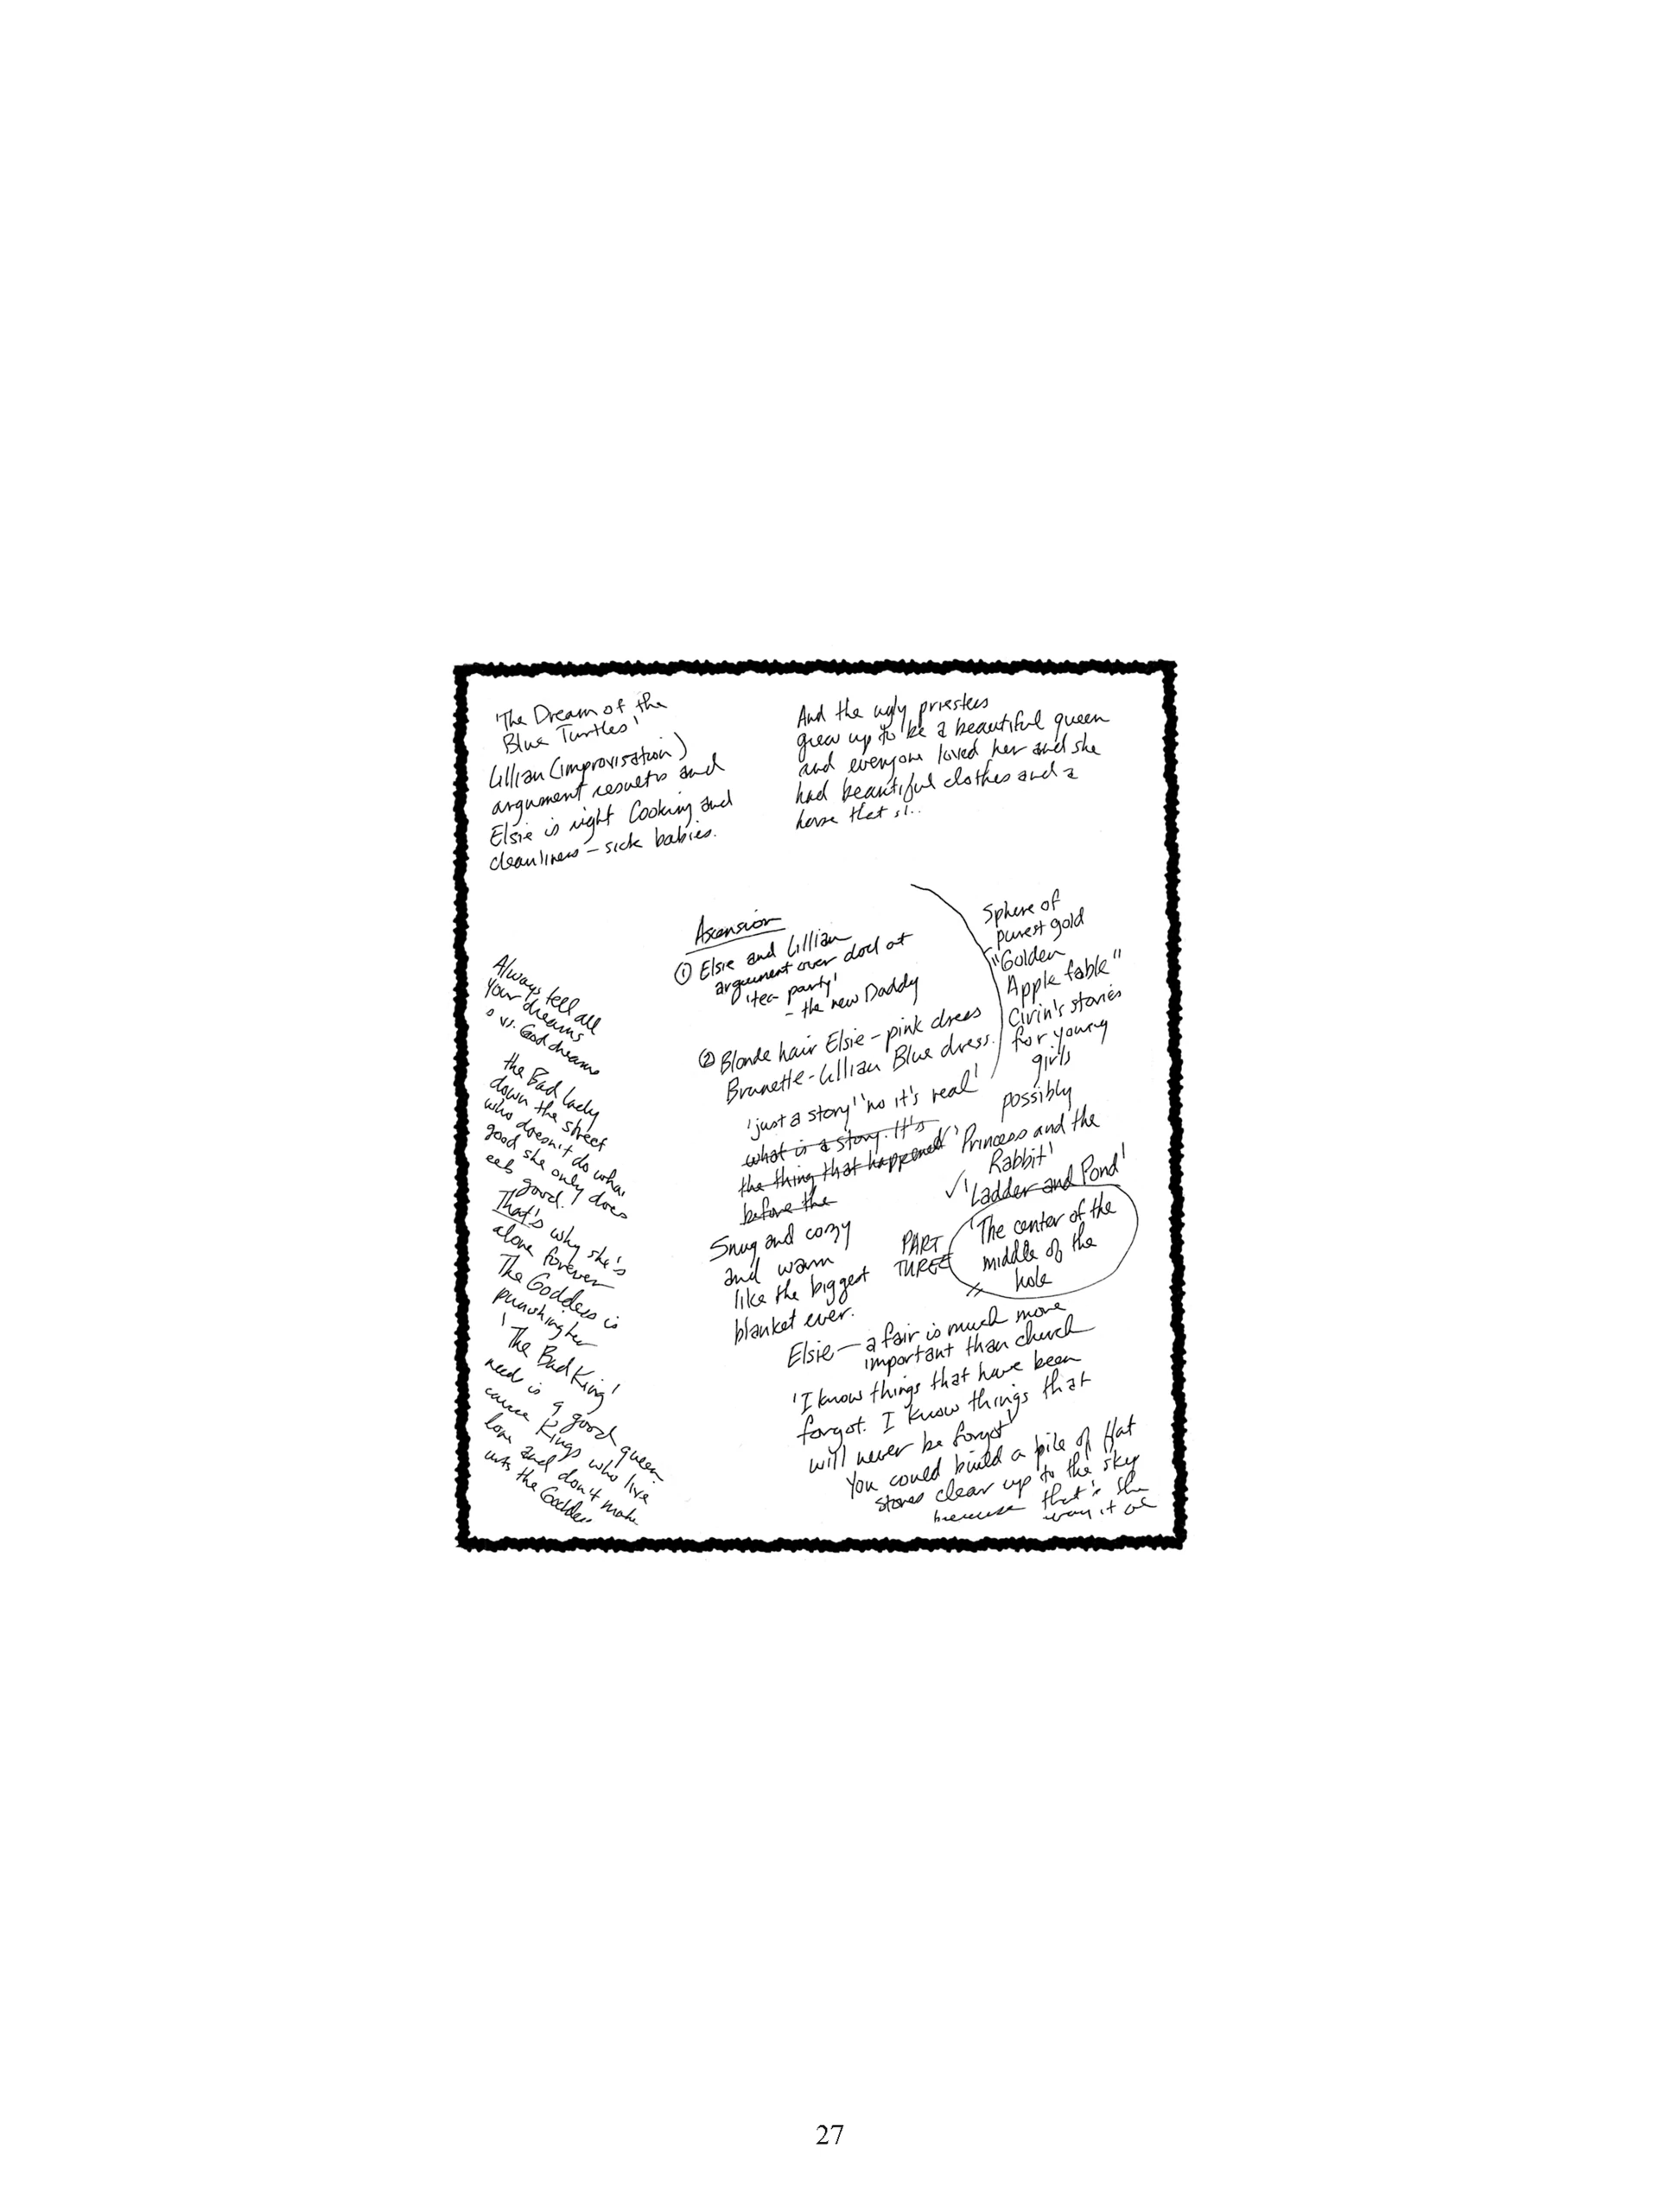 'The Dream of the
Blue Turtles'
Lillian (improvisation)
argument results and
Elsie is right Cooking and
cleanliness – sick babies.
And the ugly priestess
grew up to be a beautiful queen
and everyone loved her and she
had beautiful clothes and a
horse that
Ascension
① Elsie and Lillian
argument over doll at
'tea party'
- the new Daddy
② Blonde hair Elsie – pink dress
Brunette - Lillian Blue dress.
'just a story' 'no it's real'
what is a story. It's
the thing that happened
before the
Snug and cozy
and warm
like the biggest
blanket ever.
Sphere of
purest gold
"Golden
Apple fable"
Civin's stories
for young
girls
possibly
'Princess and the
Rabbit'
✓ 'Ladder and Pond'
PART
THREE
'The center of the
middle of the
hole
Elsie – a fair is much more
important than church
'I know things that have been
forgot. I know things that
will never be forgot'
You could build a pile of flat
stones clear up to the sky
because that's the
way it
Always tell all
your dreams
vs. God dreams
the Bad lady
down the street
who doesn't do
good she only does
good!
That's why she's
alone forever
The Goddess is
punishing her
'The Bad King'
need is a good queen
cause Kings who live
and don't make
the Goddess
27